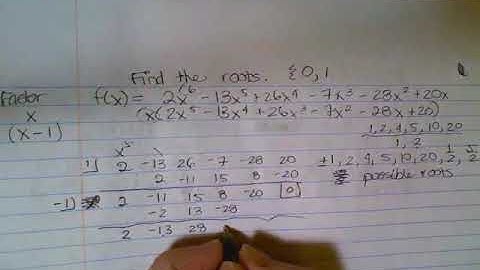 Find the roots. {0, 1
Factor f(x) = 2x⁶ - 13x⁵ + 26x⁴ - 7x³ - 28x² + 20x
x (x(2x⁵ - 13x⁴ + 26x³ - 7x² - 28x + 20)
(x-1) 1, 2, 4, 5, 10, 20
1, 2
x⁵
1) 2 -13 26 -7 -28 20 ±1, 2, 4, 5, 10, 20, 1/2, 5/2
2 -11 15 8 -20 possible roots
-1) 2 -11 15 8 -20 0
-2 13 -28
2 -13 28